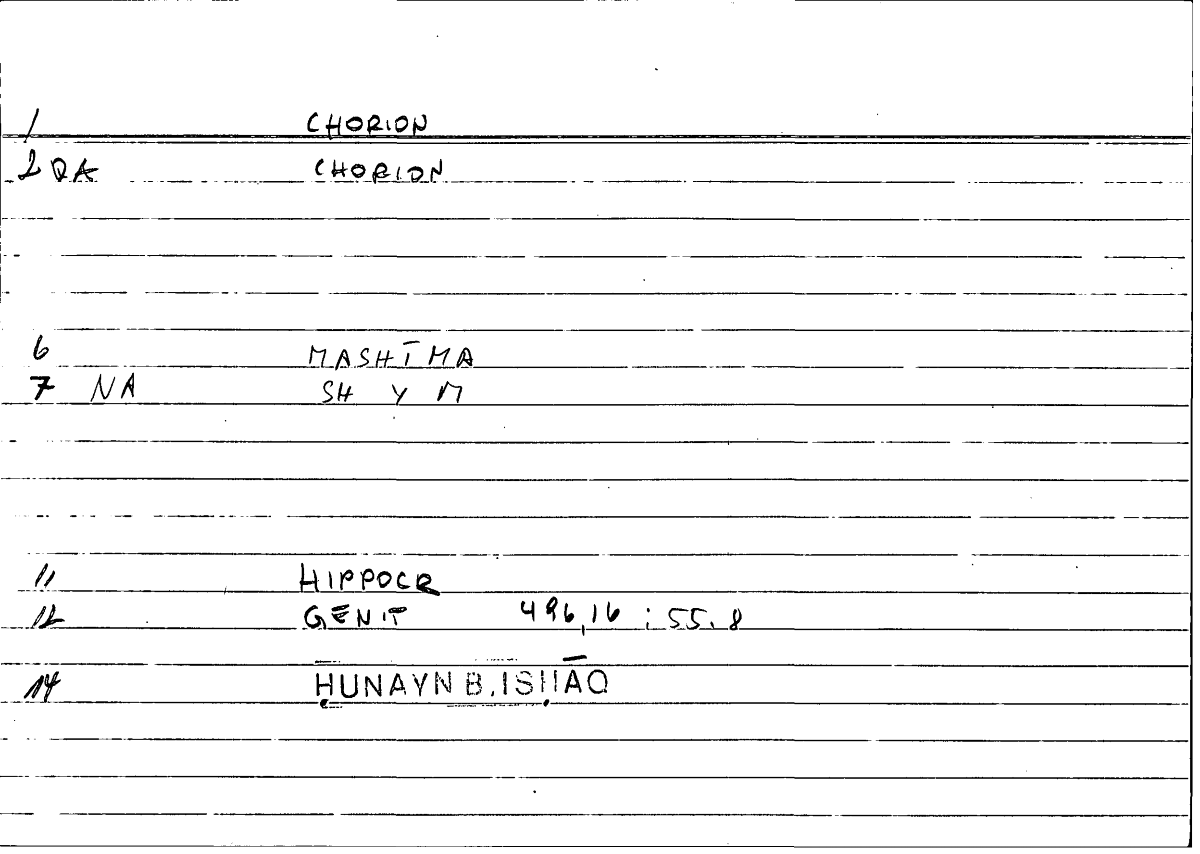 1 CHORION
2 QA CHORION
6 MASHĪMA
7 NA SH Y M
11 HIPPOCR
12 GENIT 496,16 ; 55.8
14 ḤUNAYN B. ISḤĀQ